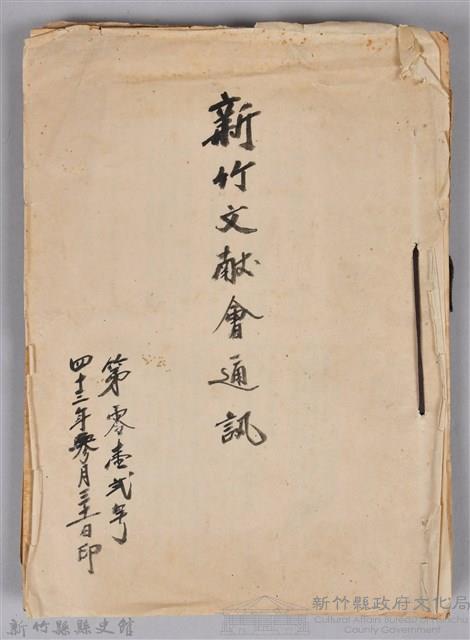 新竹文献會通訊
第零壹弍号
四十三年叁月三十一日印
新竹縣縣史館
新竹縣政府文化局
Cultural Affairs Bureau of Hsinchu
County Government